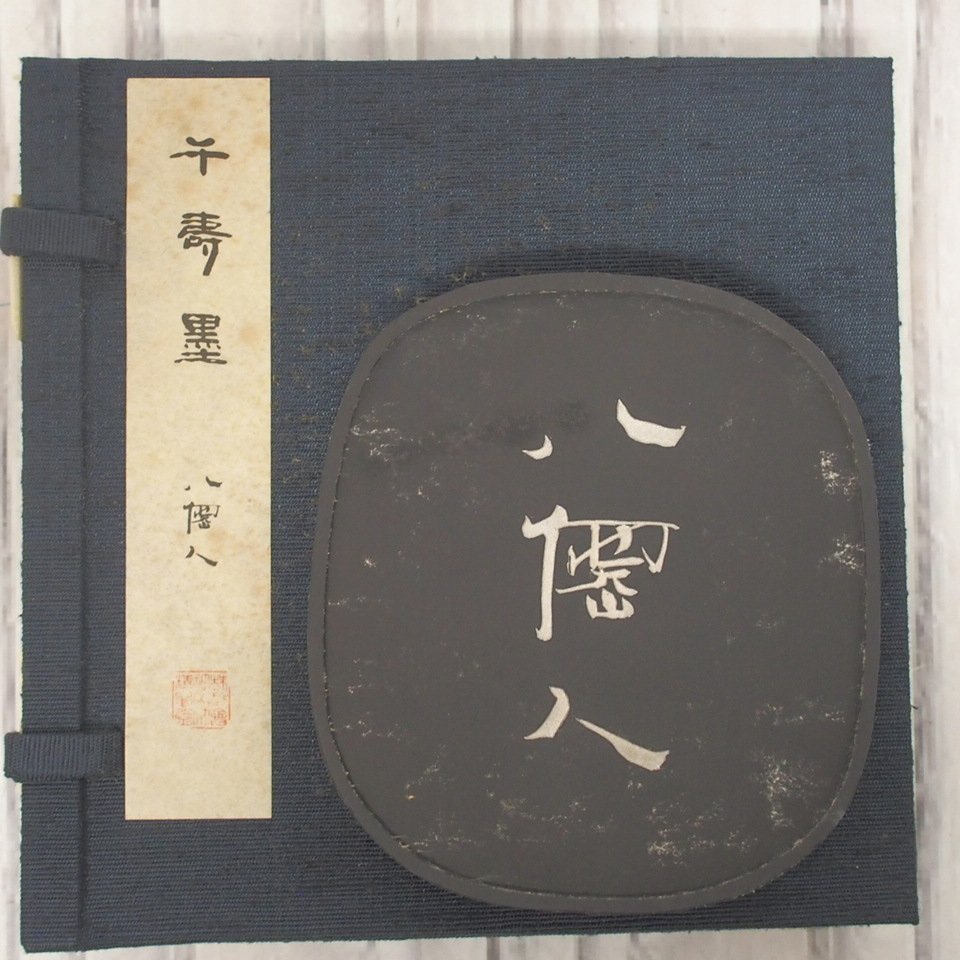 千壽墨
八僊人
八僊人